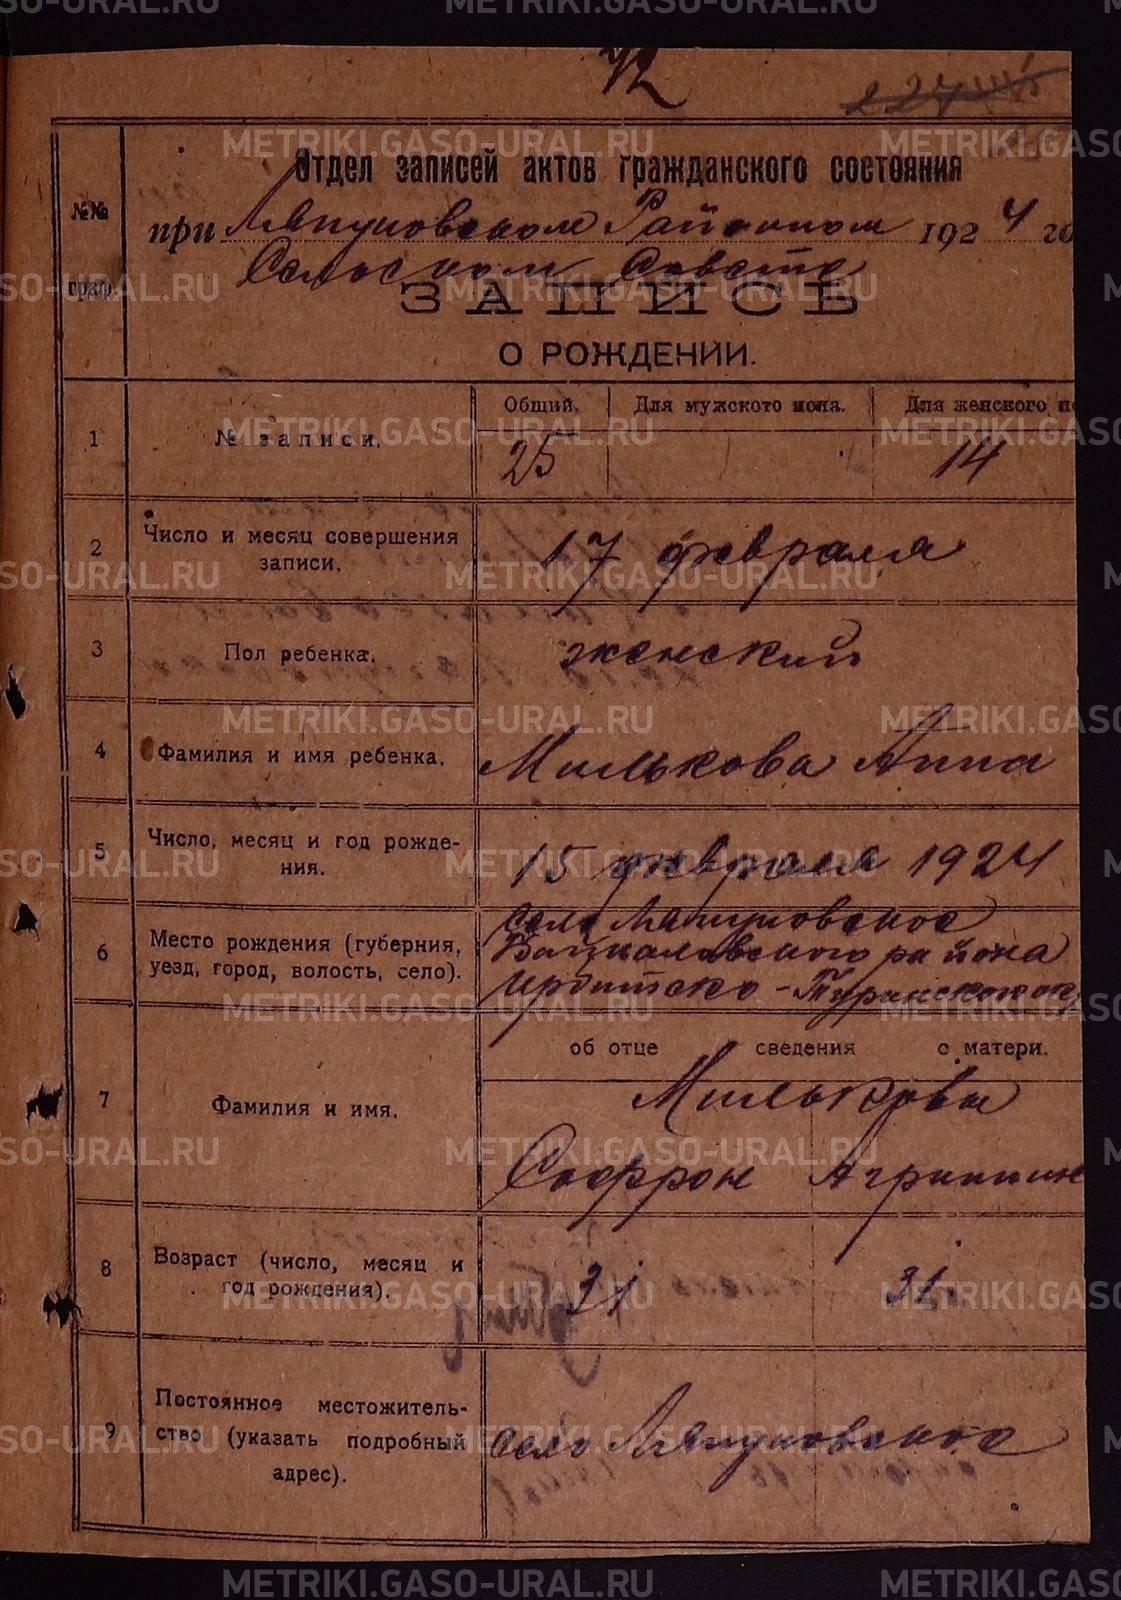 72
227
Отдел записей актов гражданского состояния
№№ граф.
при Ляпуновском Районном 1924 го
Сельском Совете
ЗАПИСЬ
О РОЖДЕНИИ.
1 № записи. Общий. Для мужского пола. Для женского по
25 14
2 Число и месяц совершения записи. 17 февраля
3 Пол ребенка. женский
4 Фамилия и имя ребенка. Милькова Анна
5 Число, месяц и год рожде-
ния. 15 февраля 1924
6 Место рождения (губерния,
уезд, город, волость, село). село Ляпуновское
Байкаловского района
Ирбитско-Туринского ок
об отце сведения о матери.
7 Фамилия и имя. Мильковы
Софрон Агриппин
8 Возраст (число, месяц и
год рождения). 31 31.
9 Постоянное местожитель-
ство (указать подробный
адрес). село Ляпуновское
METRIKI.GASO-URAL.RU